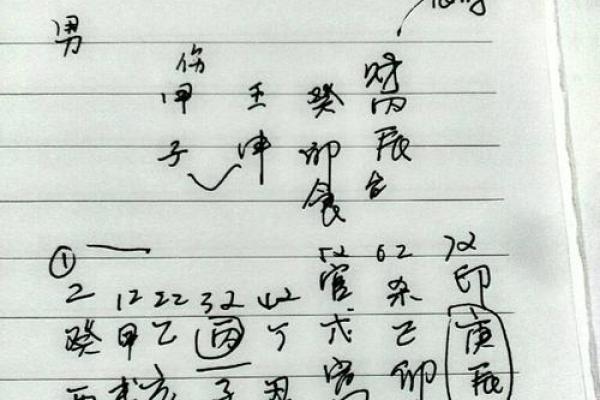 男
伤 财
甲 壬 癸 丙
子 申 卯 辰
食
①
52 62 72
2 12 22 32 42 官 杀 印
癸 甲 乙 丙 丁 戊 己 庚
酉 戌 亥 子 丑 寅 卯 辰